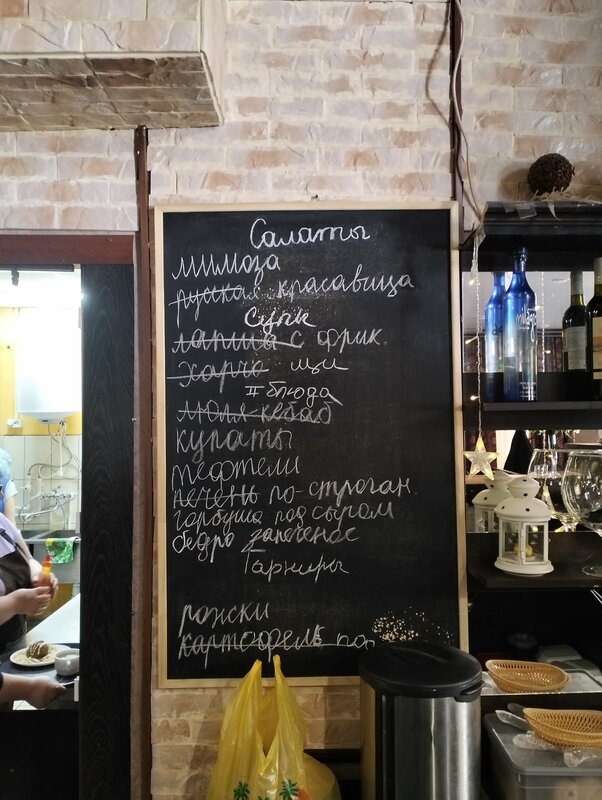 Салаты
мимоза
русская красавица
Супы
лапша с фрик.
харчо щи
II блюда
люля-кебаб
купаты
тефтели
печень по-строган.
горбуша под сыром
бедро запеченое
Гарниры
рожки
картофель по